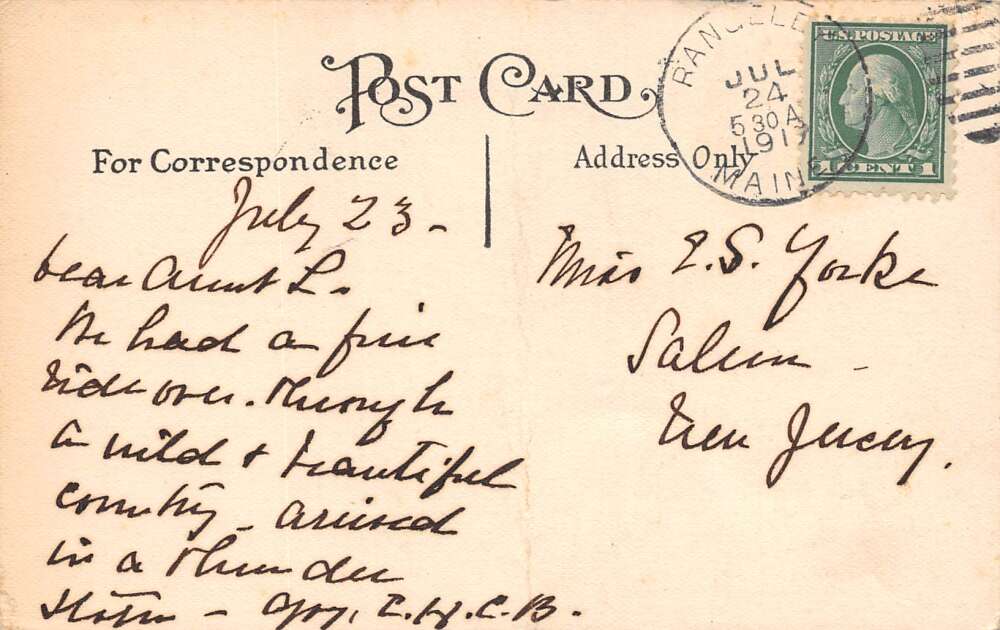 POST CARD
For Correspondence
Address Only
RANGELEY
JUL
24
5 30 A
1917
MAINE
U.S. POSTAGE
1 CENT 1
July 23 -
Dear Aunt L.
We had a fine
ride over. through
a wild & beautiful
country - arrived
in a thunder
storm - E.H.C.B.
Miss E.S. Yorke
Salem -
New Jersey.